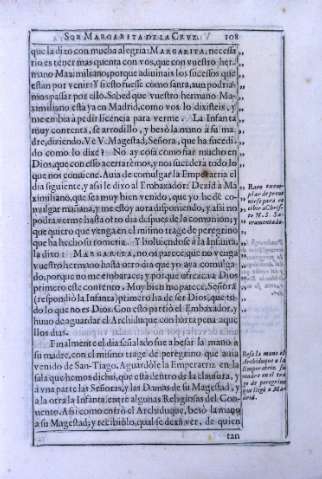 SOR MARGARITA DE LA CRVZ. 108
que la dixo con mucha alegria: MARGARITA, necessa-
rio es tener mas quenta con vos, que con vuestro her-
mano Maximiliano, porque adiuinais los sucessos que
estan por venir: Y si esso fuesse como santa, aun podria-
mos passar por ello. Sabed que vuestro hermano Ma-
ximiliano està ya en Madrid, como vos lo dixisteis, y
me embia à pedir licencia para verme. La Infanta
muy contenta, se arrodillo, y besò la mano à su ma-
dre, diziendo. Ve V. Magestad, Señora, que ha sucedi-
do como lo dixe? No ay cosa como fiar mucho en
Dios, que con esso acertarèmos, y nos sucederà todo lo
que nos conuiene. Auia de comulgar la Emperatriz el
dia siguiente, y assi le dixo al Embaxador: Dezid à Ma-
ximiliano, que sea muy bien venido, que yo he de co-
mulgar mañana, y me estoy aora disponiendo, y assi no
podrà verme hasta otro dia despues de la comunion; y
que quiero que venga en el mismo trage de peregrino
que ha hecho su romeria. Y boluiendose à la Infanta,
la dixo: MARGARITA, no os parece, que no venga
vuestro hermano hasta otro dia que yo aya comulga-
do, porque no me embarace; y por que ofrezca à Dios
primero este contento, Muy bien me parece, Señora
(respondiò la Infanta) primero ha de ser Dios, que to-
do lo que no es Dios. Con esto partiò el Embaxador, y
huuo de aguardar el Archiduque con harta pena aque-
llos dias.
Finalmente el dia señalado fue à besar la mano à
su madre, con el mismo trage de peregrino que auia
venido de San-Tiago. Aguardòle la Emperatriz en la
sala que hemos dicho, que està dentro de la clausura, à
vna parte las Señoras, y las Damas de su Magestad, y
à la otra la Infanta, entre algunas Religiosas del Con-
uento. Assi como entrò el Archiduque, besò la mano
à su Magestad; y recibiòlo, qual se dexa ver, de quien
tan
Raro exem-
plar de preue-
nirse para re-
cibir à Chris-
to N. S. Sa-
cramentado.
Besa la mano el
Archiduque à la
Emperatriz, su
madre en el tra
ge de peregrino
que llegò à Ma-
drid.